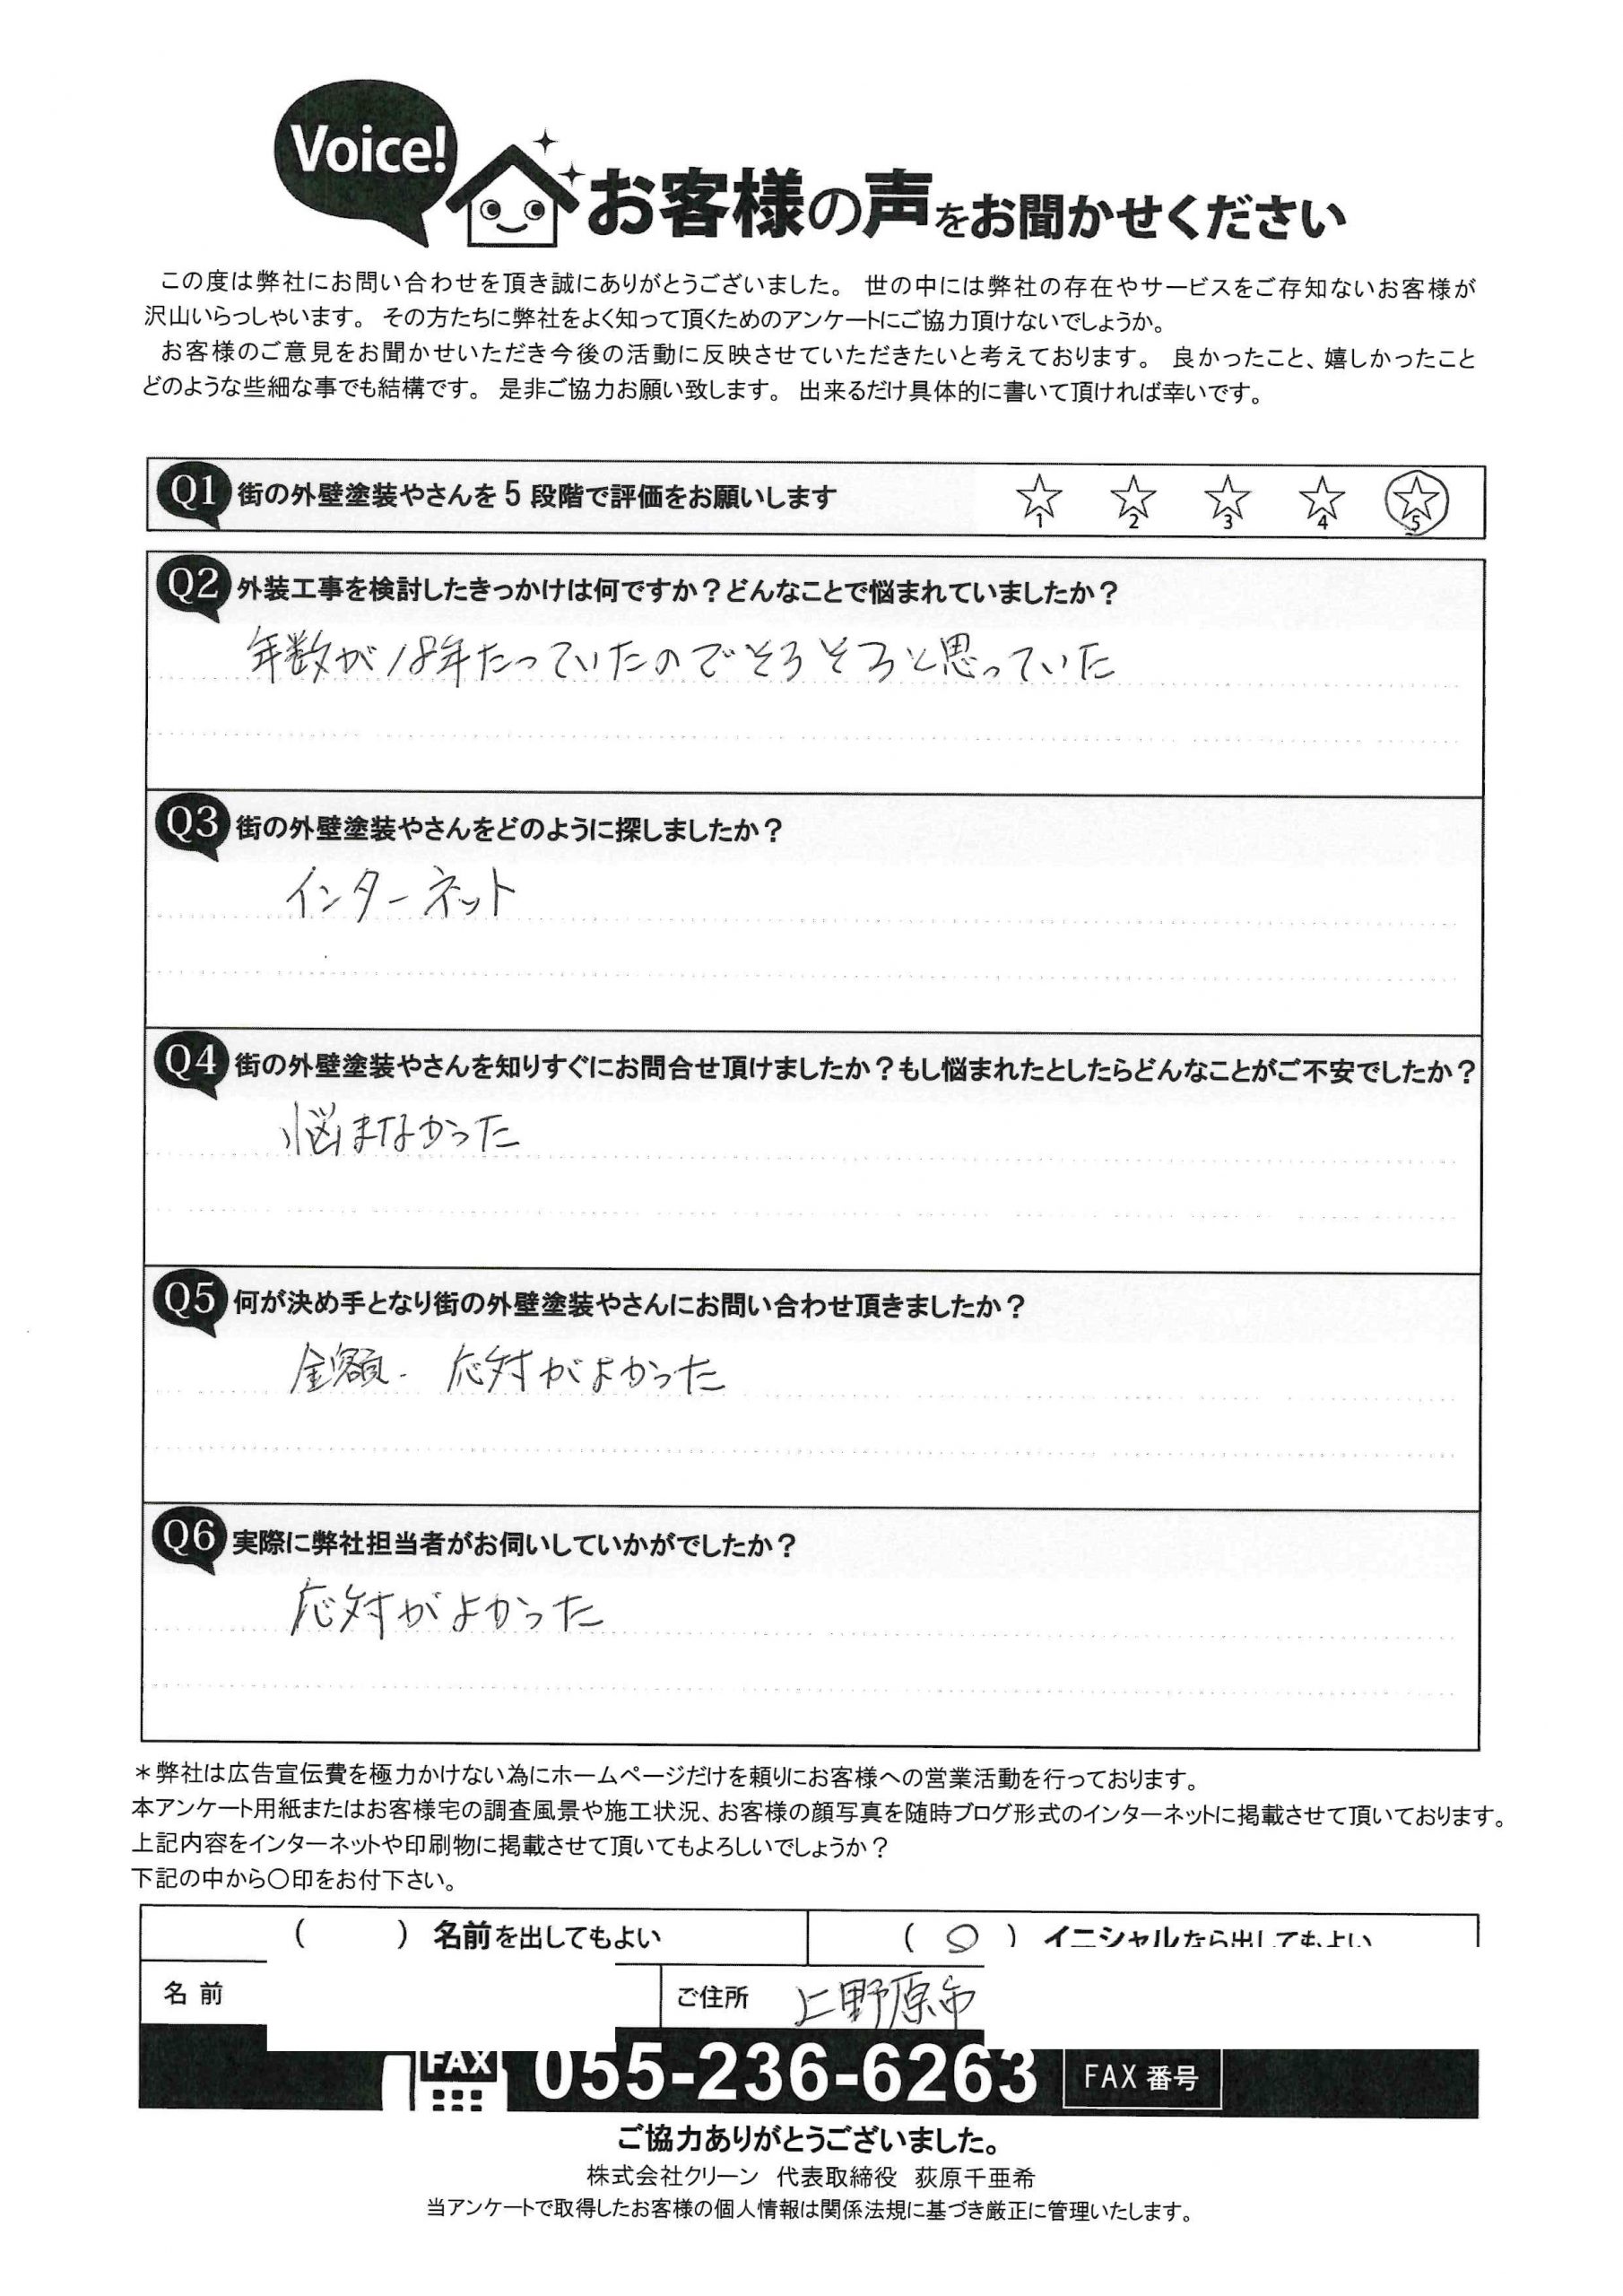 Voice!
お客様の声をお聞かせください
この度は弊社にお問い合わせを頂き誠にありがとうございました。 世の中には弊社の存在やサービスをご存知ないお客様が
沢山いらっしゃいます。 その方たちに弊社をよく知って頂くためのアンケートにご協力頂けないでしょうか。
お客様のご意見をお聞かせいただき今後の活動に反映させていただきたいと考えております。 良かったこと、嬉しかったこと
どのような些細な事でも結構です。 是非ご協力お願い致します。 出来るだけ具体的に書いて頂ければ幸いです。
Q1 街の外壁塗装やさんを5段階で評価をお願いします ☆1 ☆2 ☆3 ☆4 ☆5
Q2 外装工事を検討したきっかけは何ですか？どんなことで悩まれていましたか？
年数が18年たっていたのでそろそろと思っていた
Q3 街の外壁塗装やさんをどのように探しましたか？
インターネット
Q4 街の外壁塗装やさんを知りすぐにお問合せ頂けましたか？もし悩まれたとしたらどんなことがご不安でしたか？
悩まなかった
Q5 何が決め手となり街の外壁塗装やさんにお問い合わせ頂きましたか？
金額. 応対がよかった
Q6 実際に弊社担当者がお伺いしていかがでしたか？
応対がよかった
＊弊社は広告宣伝費を極力かけない為にホームページだけを頼りにお客様への営業活動を行っております。
本アンケート用紙またはお客様宅の調査風景や施工状況、お客様の顔写真を随時ブログ形式のインターネットに掲載させて頂いております。
上記内容をインターネットや印刷物に掲載させて頂いてもよろしいでしょうか？
下記の中から〇印をお付下さい。
（　　）名前を出してもよい （○）イニシャルなら出してもよい
名前 ご住所 上野原市
FAX 055-236-6263 FAX 番号
ご協力ありがとうございました。
株式会社クリーン 代表取締役 荻原千亜希
当アンケートで取得したお客様の個人情報は関係法規に基づき厳正に管理いたします。